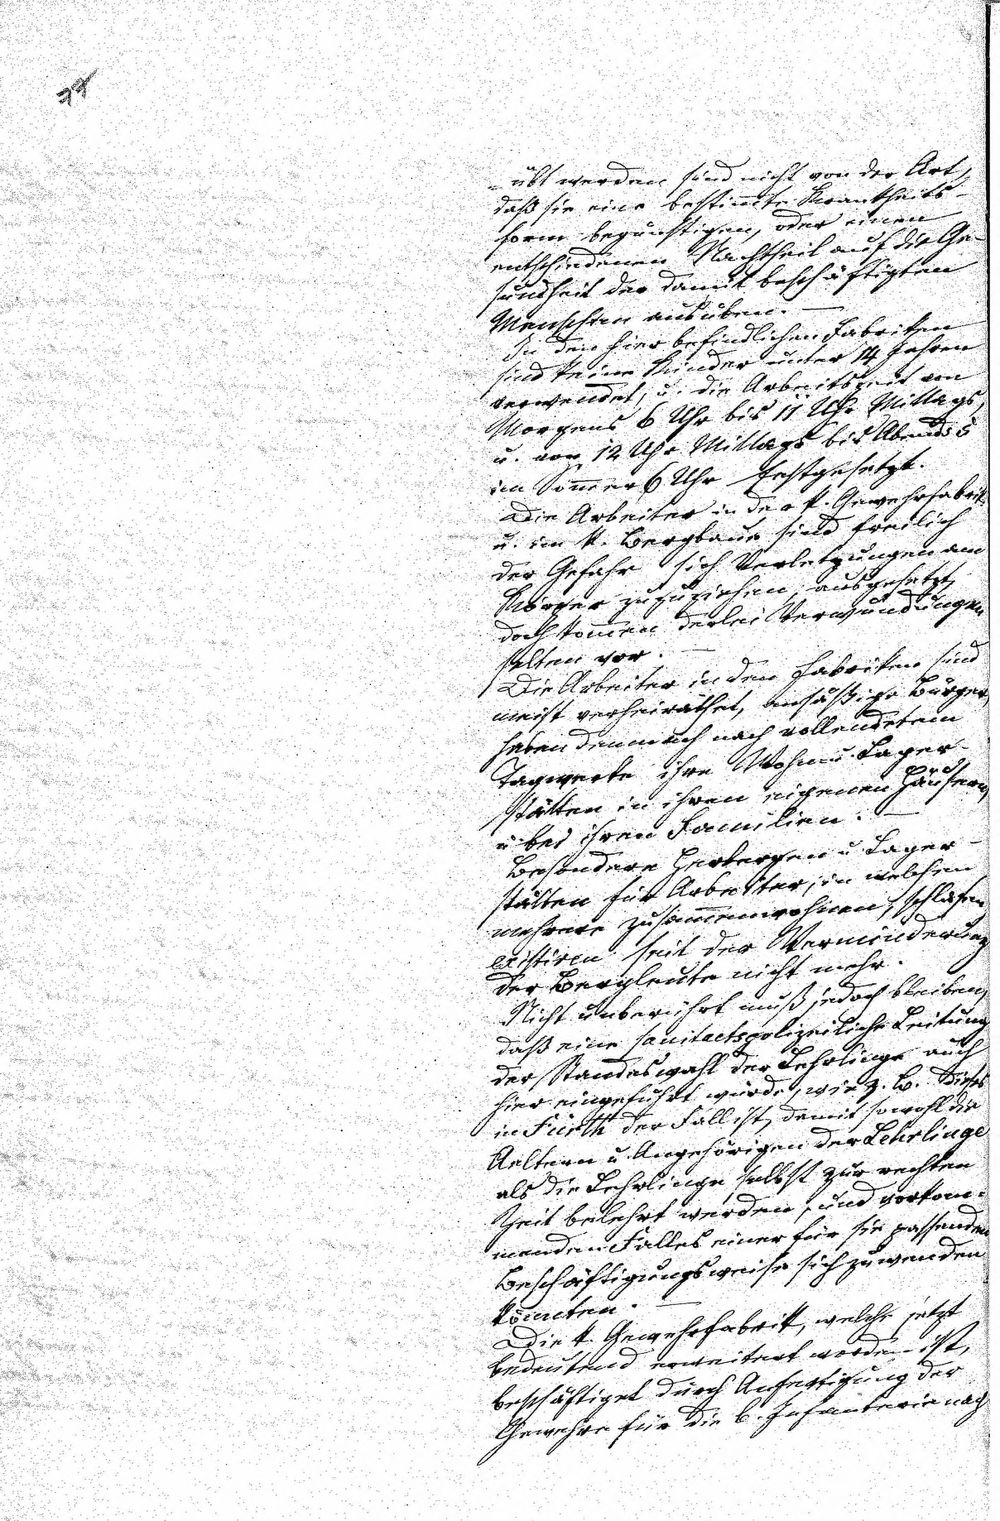 77
-übt werden sind nicht von der Art,
daß sie eine bestim̄te Krankheits-
form begünstigen, oder einen
entschiedenen Nachtheil auf die Ge-
sundheit der damit beschäftigten
Menschen ausüben. —
In den hier befindlichen Fabriken
sind keine Kinder unter 14 Jahren
verwendet, u. die Arbeitszeit von
Morgens 6 Uhr bis 11 Uhr Mittags,
u. von 12 Uhr Mittags bis Abends 5
im Som̄er 6 Uhr festgesetzt.
Die Arbeiter in der k. Gewehrfabrik
u. im k. Bergbaue sind freilich
der Gefahr sich Verletzungen am
Körper zuzuziehen, ausgesetzt,
doch kom̄en derlei Verwundungen
selten vor. —
Die Arbeiter in den Fabriken sind
meist verheirathet, ansäßige Bürger,
haben demnach nach vollendetem
Tagwerke ihre Wohn u. Lager-
stätten in ihren eigenen Häusern,
u bei ihren Familien. —
Besondere Herbergen u Lager-
stätten für Arbeiter, in welchen
mehrere zusam̄enwohnen, schlafen
existiren seit der Verminderung
der Bergleute nicht mehr.
Nicht unberührt muß jedoch bleiben,
daß eine sanitaetspolizeiliche Leitung
der Standeswahl der Lehrlinge auch
hier eingeführt würde, wie z. B. dieses
in Fürth der Fall ist, damit sowohl die
Aeltern u Angehörigen der Lehrlinge
als die Lehrlinge selbst zur rechten
Zeit belehrt werden, und vorkom-
menden Falles einer für sie passenden
Beschäftigungsweise sich zuwenden
könnten. —
Die k. Gewehrfabrik, welche jetzt
bedeutend erweitert worden ist,
beschäftiget durch Anfertigung der
Gewehre für die b. Infanterie nach